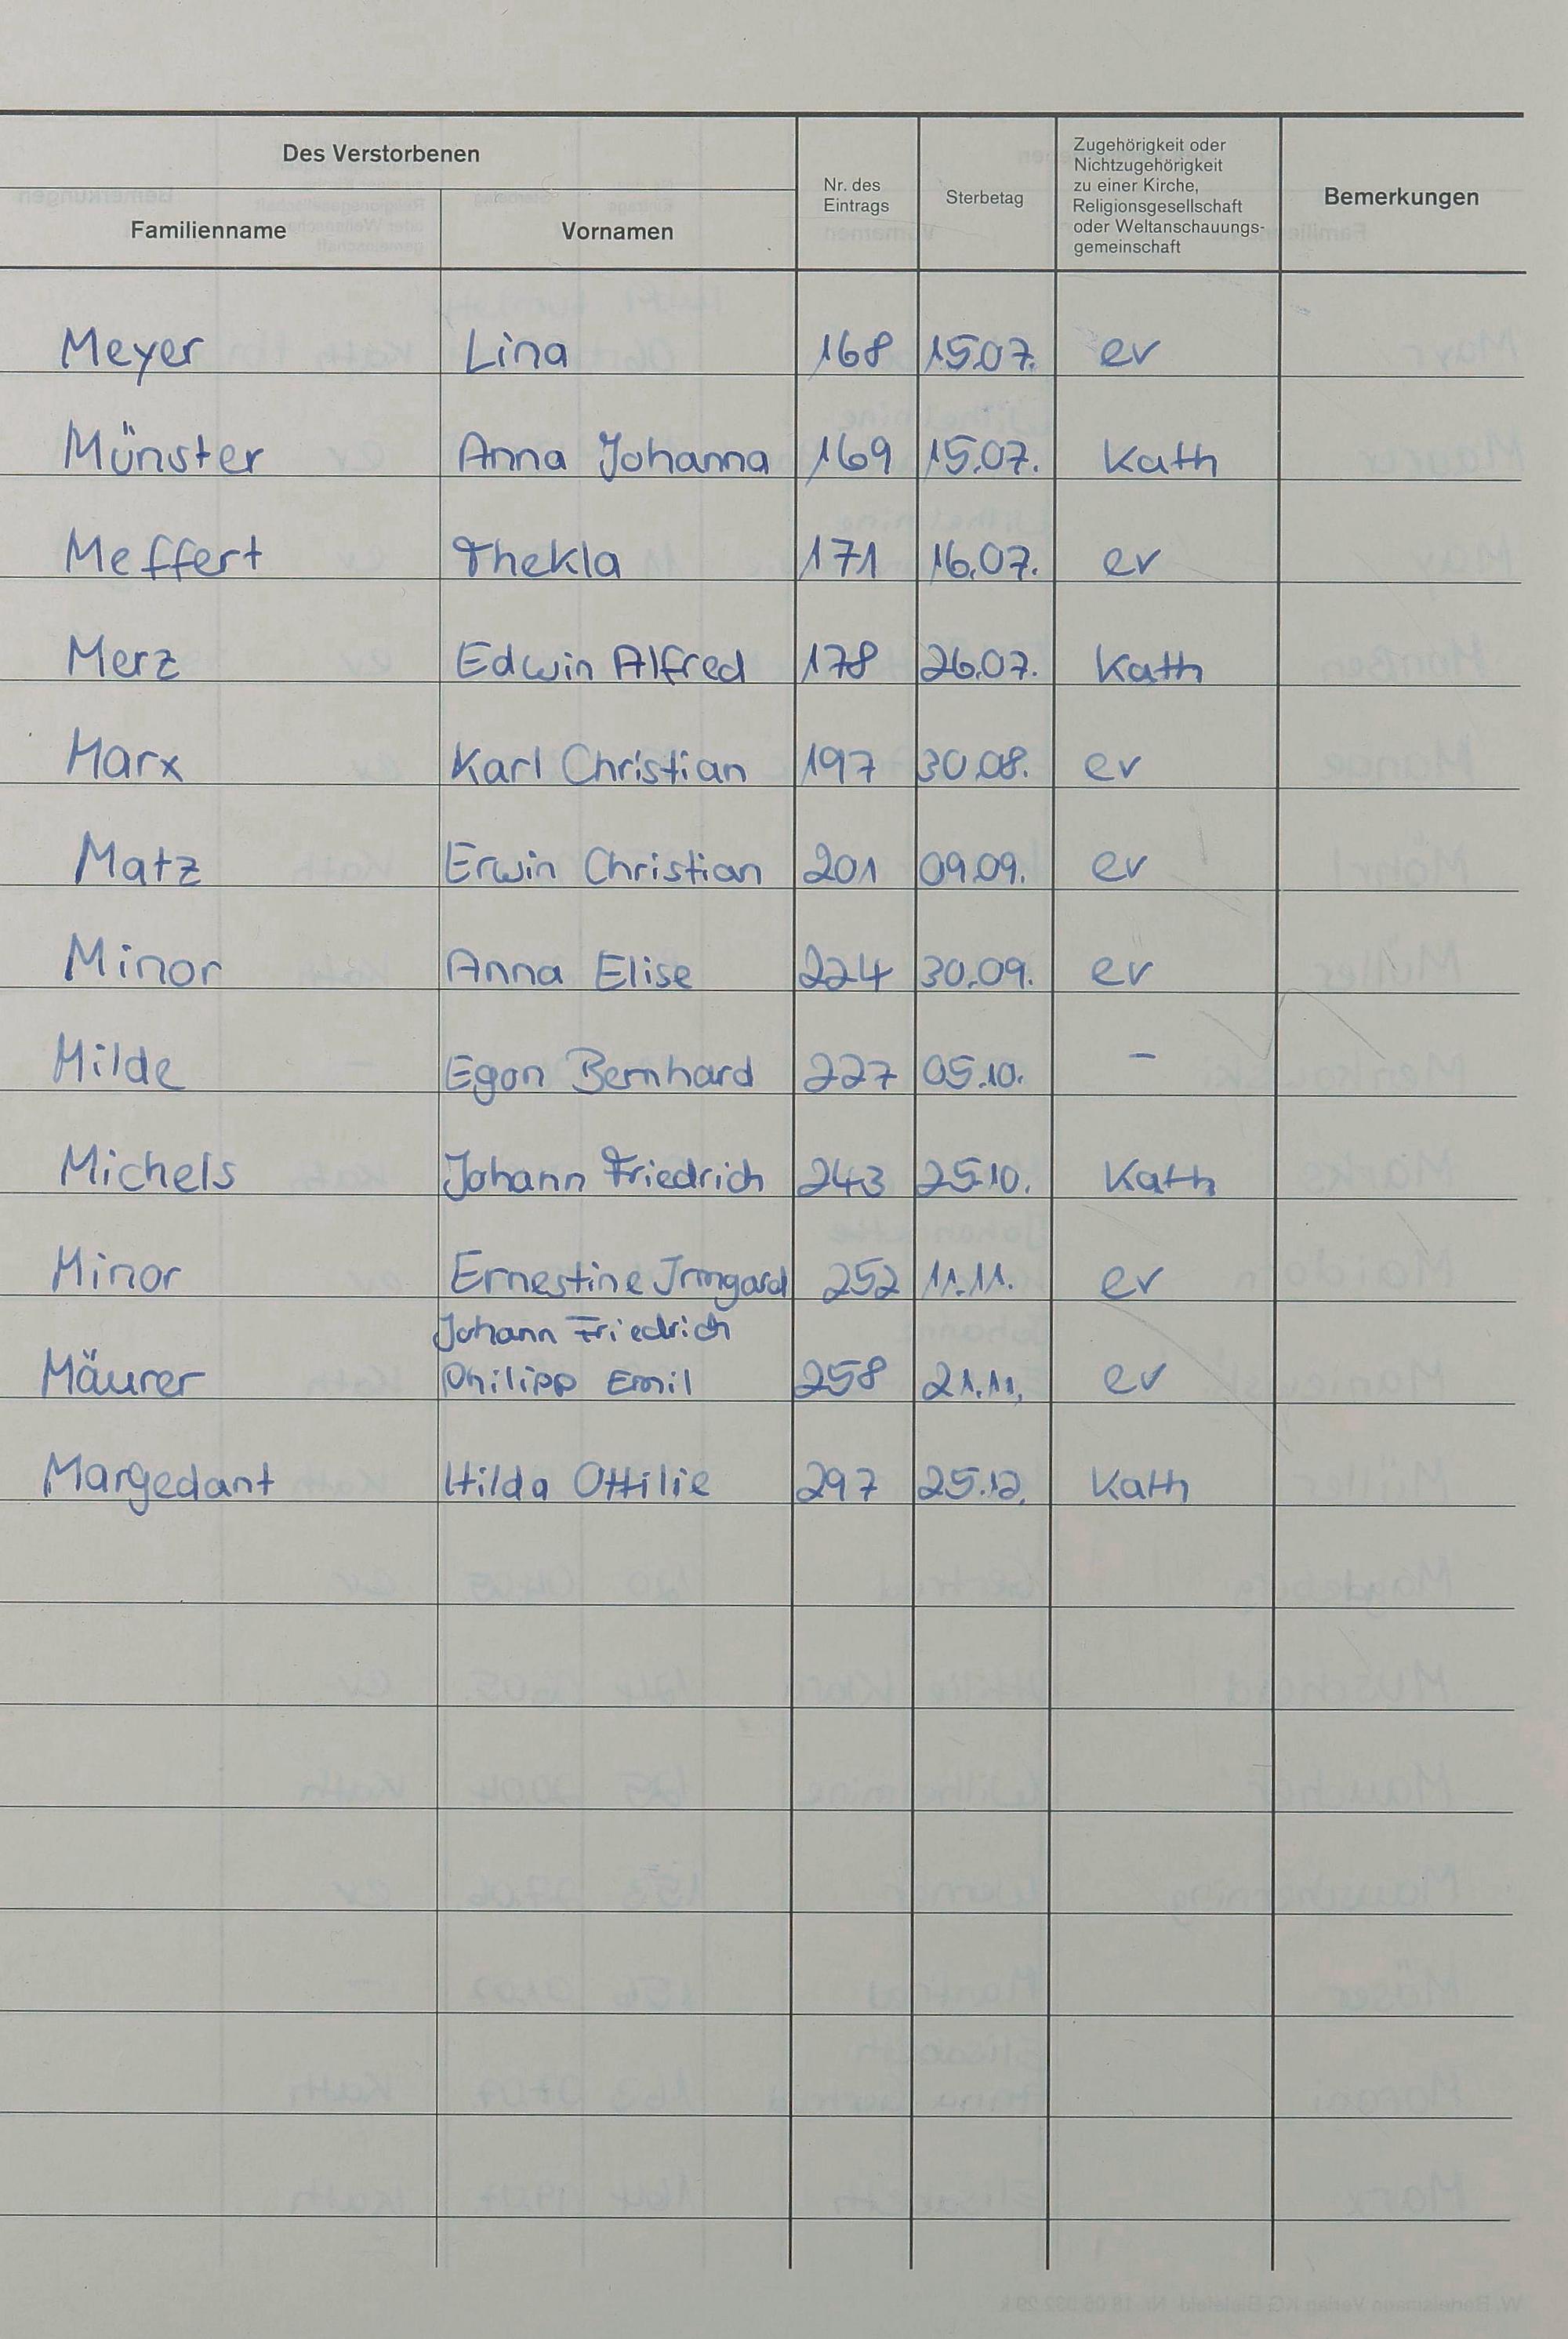 Des Verstorbenen
Familienname Vornamen Nr. des Eintrags Sterbetag Zugehörigkeit oder Nichtzugehörigkeit zu einer Kirche, Religionsgesellschaft oder Weltanschauungs-gemeinschaft Bemerkungen
Meyer Lina 168 15.07. ev
Münster Anna Johanna 169 15.07. Kath
Meffert Thekla 171 16.07. ev
Merz Edwin Alfred 178 26.07. Kath
Marx Karl Christian 197 30.08. ev
Matz Erwin Christian 201 09.09. ev
Minor Anna Elise 224 30.09. ev
Milde Egon Bernhard 227 05.10. -
Michels Johann Friedrich 243 25.10. Kath
Minor Ernestine Irmgard 252 11.11. ev
Johann Friedrich
Mäurer Philipp Emil 258 21.11. ev
Margedant Hilda Ottilie 297 25.12. Kath